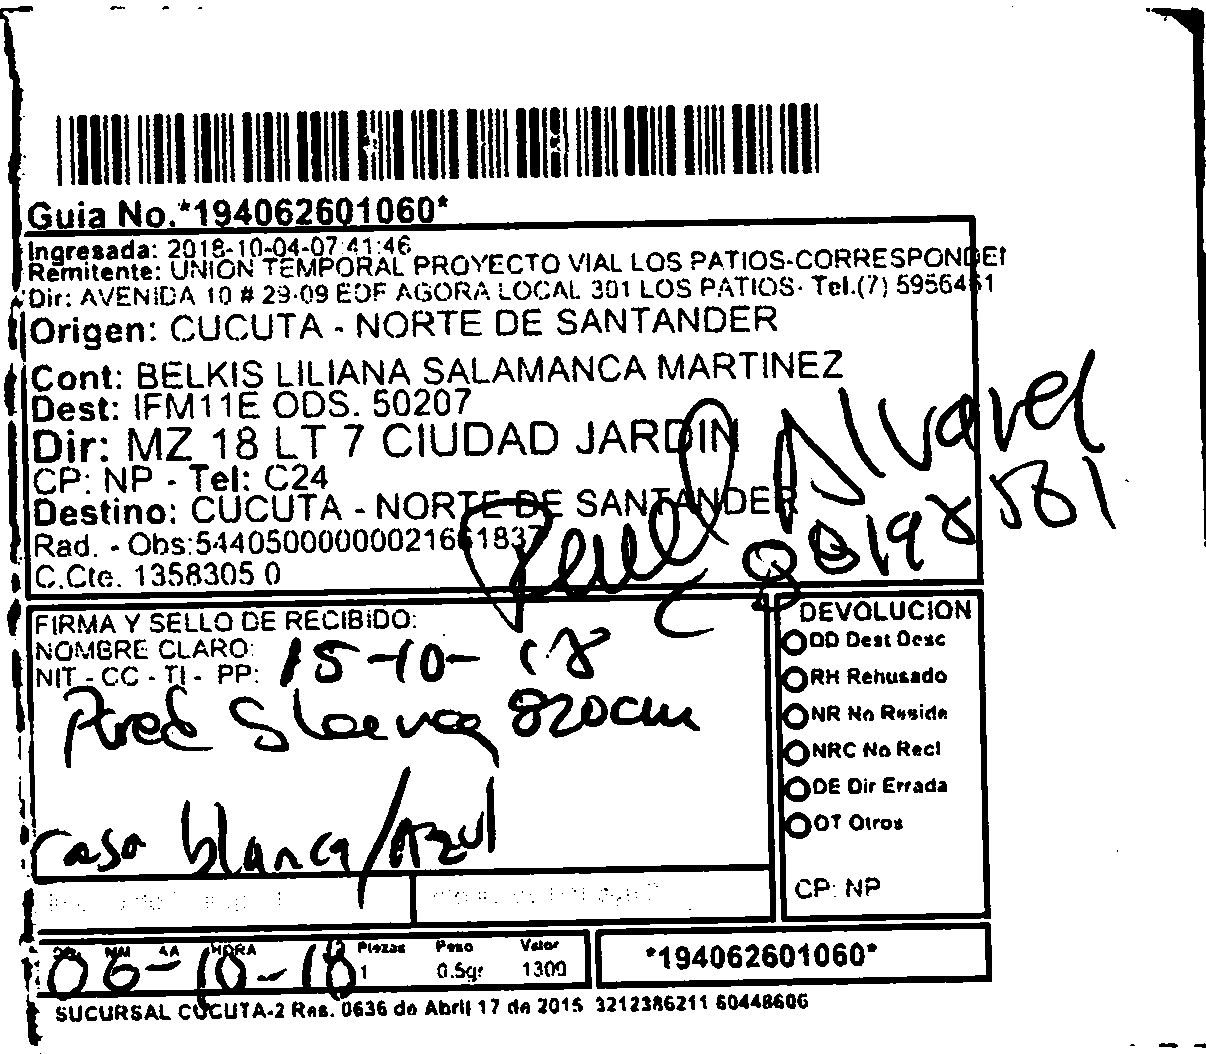 Guia No.*194062601060*
Ingresada: 2018-10-04-07:41:46
Remitente: UNION TEMPORAL PROYECTO VIAL LOS PATIOS-CORRESPONDE
Dir: AVENIDA 10 # 29-09 EDF AGORA LOCAL 301 LOS PATIOS- Tel.(7) 5956461
Origen: CUCUTA - NORTE DE SANTANDER
Cont: BELKIS LILIANA SALAMANCA MARTINEZ
Dest: IFM11E ODS. 50207
Dir: MZ 18 LT 7 CIUDAD JARDIN
CP: NP - Tel: C24
Destino: CUCUTA - NORTE DE SANTANDER
Rad. - Obs:
C.Cte. 1358305 0
Alvarez
FIRMA Y SELLO DE RECIBIDO:
NOMBRE CLARO:
NIT - CC - TI - PP: 15-10-18
820cm
casa blanca/Azul
DEVOLUCION
DD Dest Desc
RH Rehusado
NR No Reside
NRC No Recl
DE Dir Errada
OT Otros
CP: NP
HORA Piezas Peso Valor
06-10-18 1 0.5gr 1300
*194062601060*
SUCURSAL CUCUTA-2 Res. 0636 de Abril 17 de 2015 3212386211 60448606